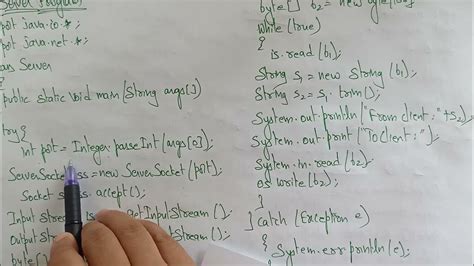 Server Program
port java.io.*;
port java.net.*;
ass Server
public static void main(String args[])
try{
int port = Integer.parseInt(args[0]);
ServerSocket ss = new ServerSocket(port);
Socket s = ss.accept();
InputStream is getInputStream();
OutputStream Stream();
byte[]
byte[] b2 = new byte[100
while (true)
{
is.read(b1);
String s1 = new String (b1);
String s2 = s1.trim();
System.out.println("From client:"+s2);
System.out.print("To client:");
System.in.read(b2);
os.write(b2);
}
} catch (Exception e)
{
System.err.println(e);